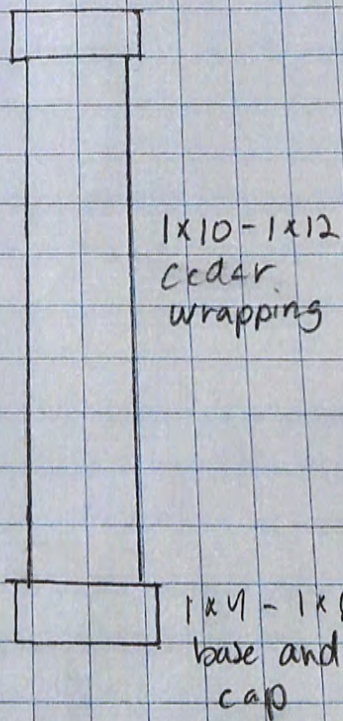 1x10 - 1x12
cedar
wrapping
1x4 - 1x
base and
cap